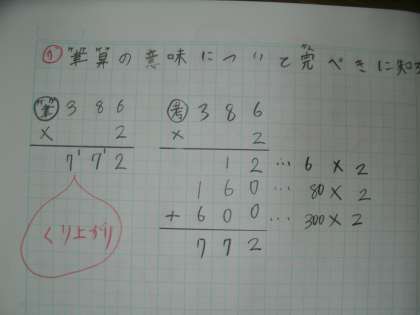 筆算の意味について
筆 386
× 2
772
くり上がり
考 386
× 2
12 … 6 × 2
160 … 80 × 2
+ 600 … 300 × 2
772